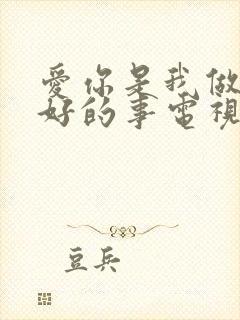 愛你是我做
好的事電視
豆兵